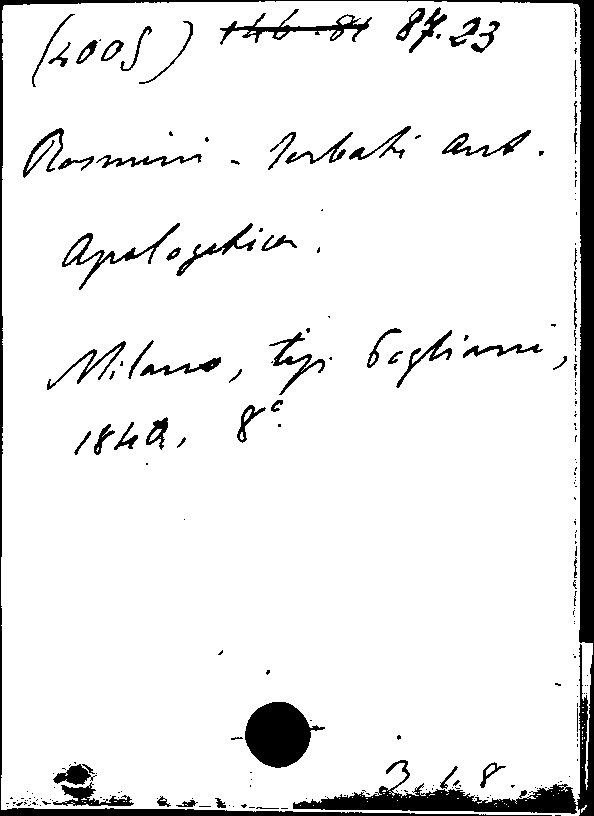 (4005) 146.81 87.23
Rosmini - Serbati Ant.
Apologetica.
Milano, tip. Pogliani,
1840, 8°.
3.1.8.